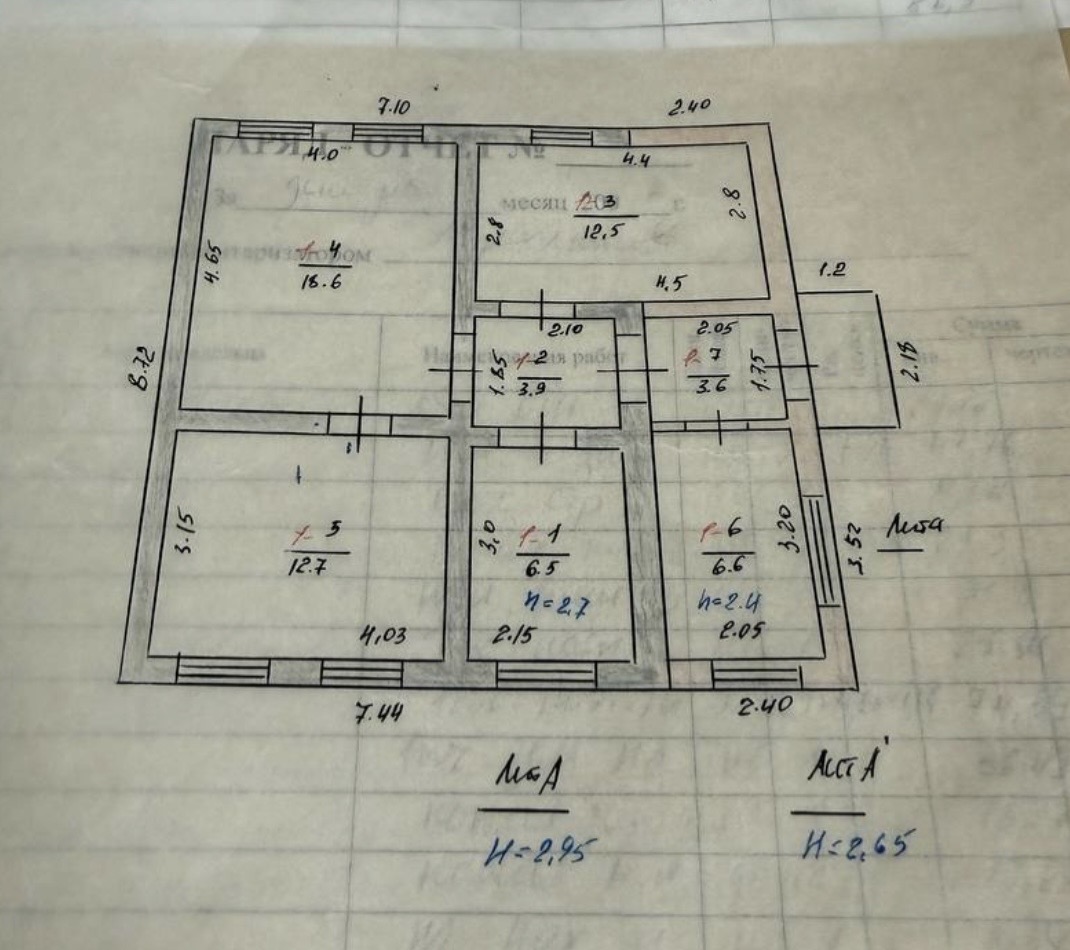 7.10
2.40
НАРЯД - ОТЧЕТ №
4.0
4.4
За
месяц 200 г.
1-3
12,5
2.8
2.8
4.65
1-4
18.6
4.5
1.2
2.10
2.05
Наименования работ
Сумма
8.72
1.85
1-2
3.9
1-7
3.6
1.75
2.18
3.15
1-5
12.7
3,0
1-1
6.5
1-6
6.6
3.20
3.52
Лит а
h=2,7
h=2.4
4,03
2.15
2.05
7.44
2.40
Лит А
Лит А'
H=2,95
H=2,65